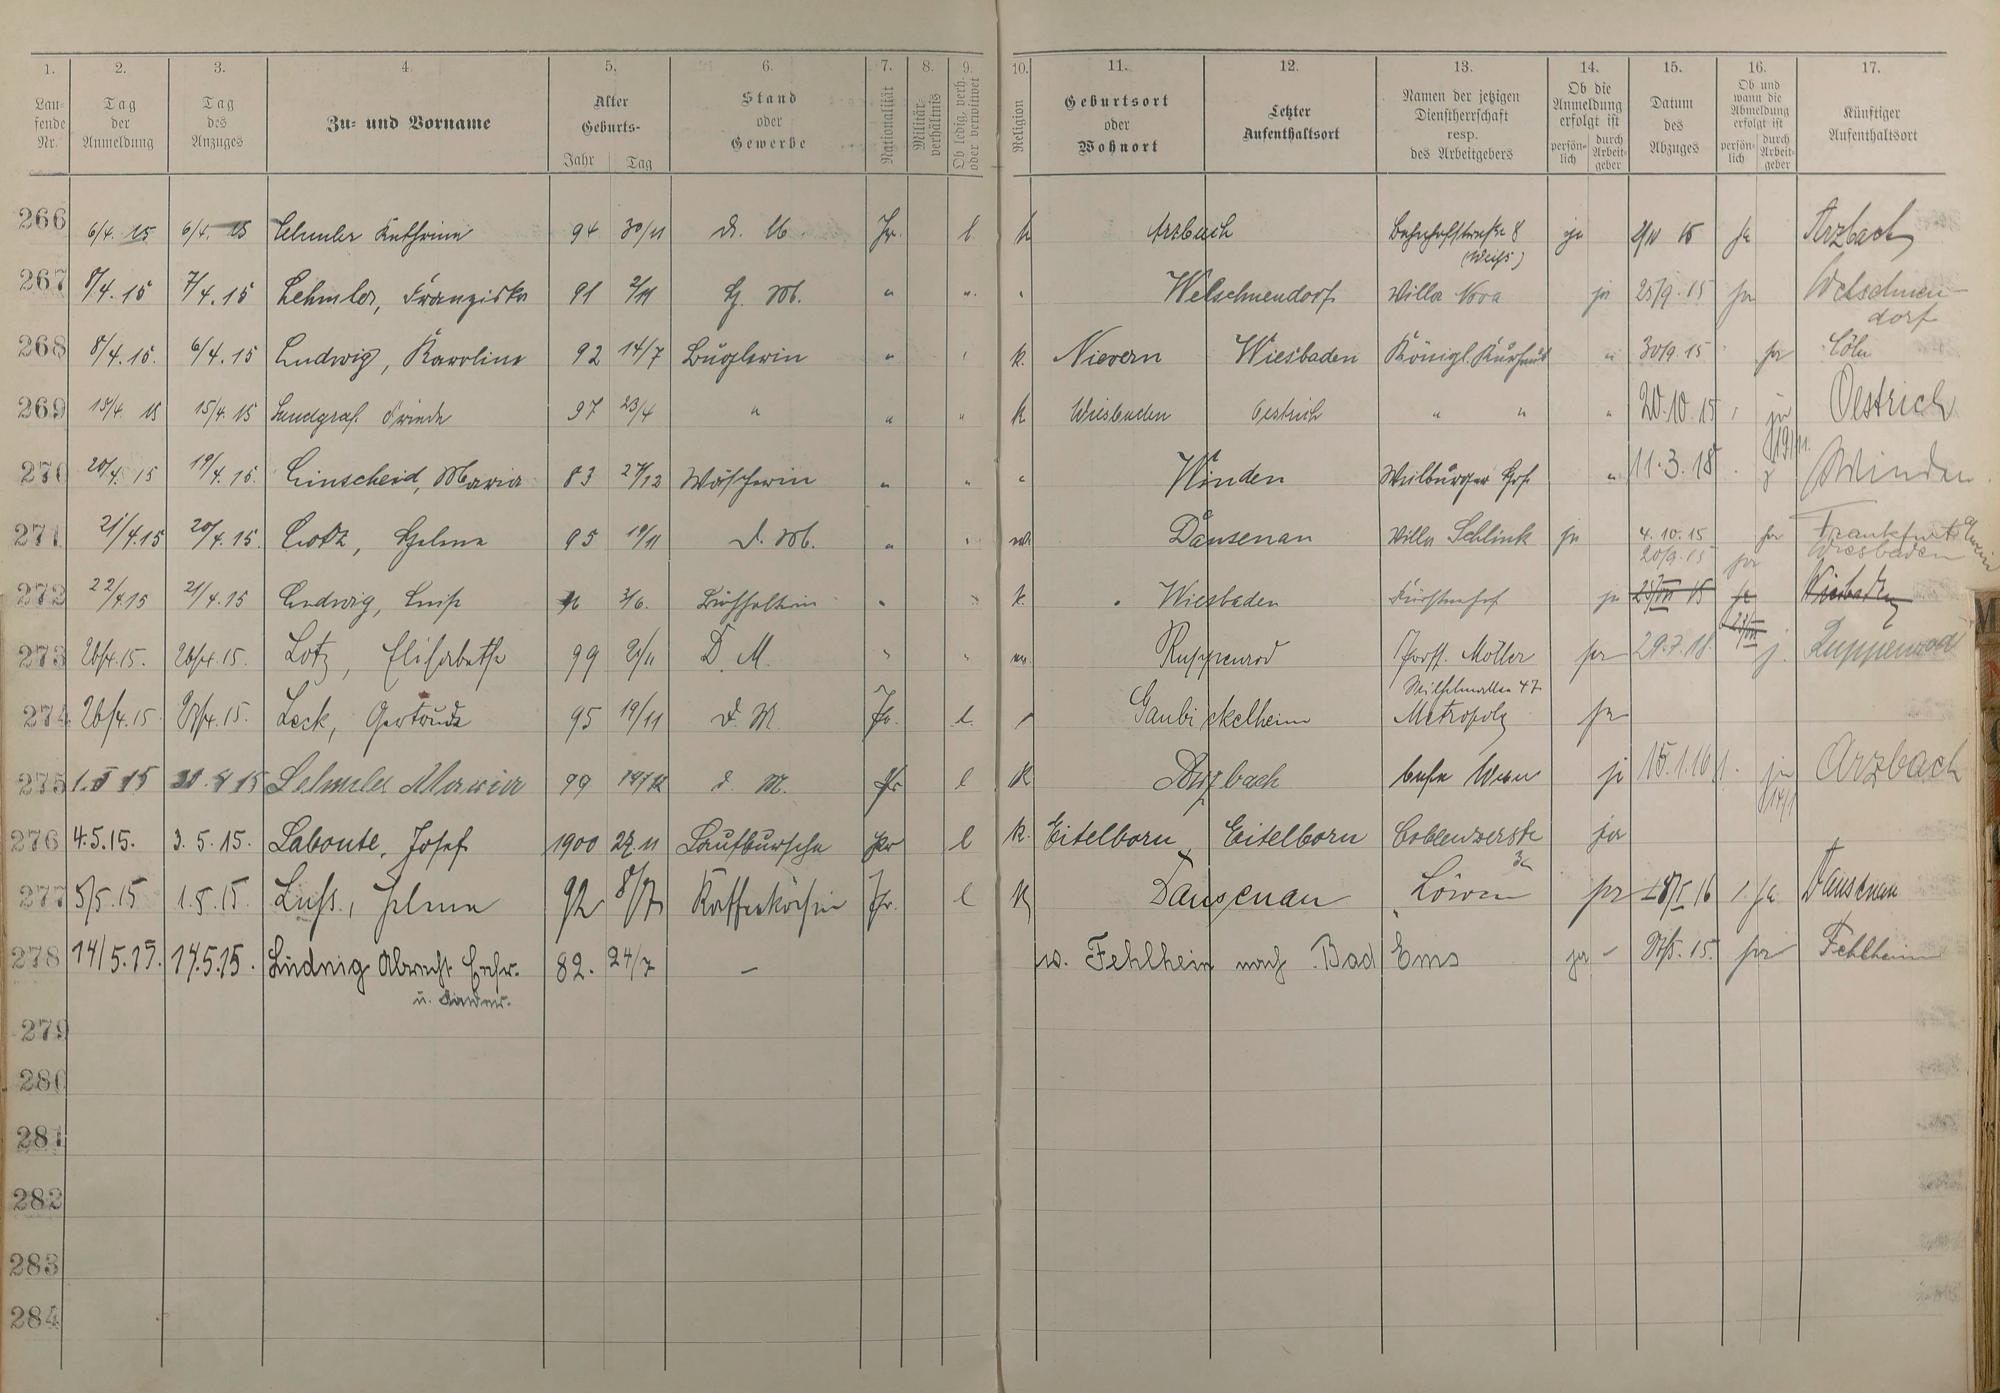 1. 2. 3. 4. 5. 6. 7. 8. 9. 10. 11. 12. 13. 14. 15. 16. 17.
Lau-
fende
Nr.
Tag
der
Anmeldung
Tag
des
Anzuges
Zu- und Vorname
Alter
Geburts-
Jahr Tag
Stand
oder
Gewerbe
Nationalität
Militär-
verhältnis
Ob ledig, verh.
oder verwitwet
Religion
Geburtsort
oder
Wohnort
Letzter
Aufenthaltsort
Namen der jetzigen
Dienstherrschaft
resp.
des Arbeitgebers
Ob die
Anmeldung
erfolgt ist
persön-
lich
durch
Arbeit-
geber
Datum
des
Abzuges
Ob und
wann die
Abmeldung
erfolgt ist
persön-
lich
durch
Arbeit-
geber
Künftiger
Aufenthaltsort
266 6/4. 15 6/4. 15 Lehmler Katharina 94 30/11 d. M. Pr. l. k Arzbach Bahnhofstraße 8 ja 15 ja Arzbach
(Weiß)
267 8/4. 15 7/4. 15 Lehmler, Franziska 91 2/11 H. M. " " " Welschneudorf Villa Nova ja 25/9. 15 ja Welschneu-
dorf
268 8/4. 15. 6/4. 15 Ludwig, Karoline 92 14/7 Büglerin " " k. Nievern Wiesbaden Königl. Kurhaus " 30/9. 15 ja Cöln
269 15/4. 15 15/4. 15 Landgraf Frieda 97 23/4 " " " k Wiesbaden Oestrich " " " 20.10.15 ja Oestrich
19/11.
270 20/4. 15 19/4. 15. Linscheid, Maria 83 27/12 Wäscherin " " " Winden Weilburger Hof " 11.3.18 Winden
271 21/4.15 20/4. 15. Lotz, Helene 95 19/11 d. M. " " Dausenau Villa Schlink ja 4. 10. 15 ja Frankfurt a Main
20/9.15 ja Wiesbaden
272 22/4.15 21/4.15 Ludwig, Luise 96 3/6. Büffettin " " k. Wiesbaden Fürstenhof ja 15 ja Wiesbaden
273 26/4.15. 26/4.15. Lotz, Elisabeth 99 2/11 D. M. " " Ruppenrod Proff. Möller ja 29.7.18. j. Ruppenrod
Wilhelmallee 47
274 26/4.15. 15. Leck, Gertrude 95 19/11 d. M. Pr. l. Gaubickelheim Metropole ja
275 1.5 15 15 Lehmler Maria 99 d. M. Pr l K Arzbach ja 15.1.16 ja Arzbach
14/1
276 4.5.15. 3.5.15. Laboute, Josef 1900 27.11 Laufbursche Pr l k. Eitelborn Eitelborn Coblenzerstr ja
3c
277 5/5.15 1.5.15. Luss, Helene 92 8/7 Kaffeeköchin Pr. l K Dausenau Löwen ja 16 1. ja Dausenau
278 14/5.15. 14.5.15. Ludwig Albrecht Ehefr. 82. 24/7 — w. Fehlheim nach Bad Ems ja - 15. ja Fehlheim
u. Kinder.
279
280
281
282
283
284